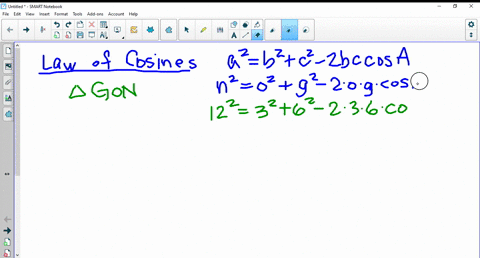 Untitled * - SMART Notebook
File Edit View Insert Format Tools Add-ons Help
Law of Cosines
a²=b²+c²-2bccosA
△GON
n²=o²+g²-2·o·g·cos
12²=3²+6²-2·3·6·co